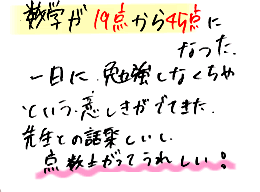 数学が19点から45点に
なった。
一日に勉強しなくちゃ
という意しきがでてきた。
先生との話楽しいし、
点数上がってうれしい!